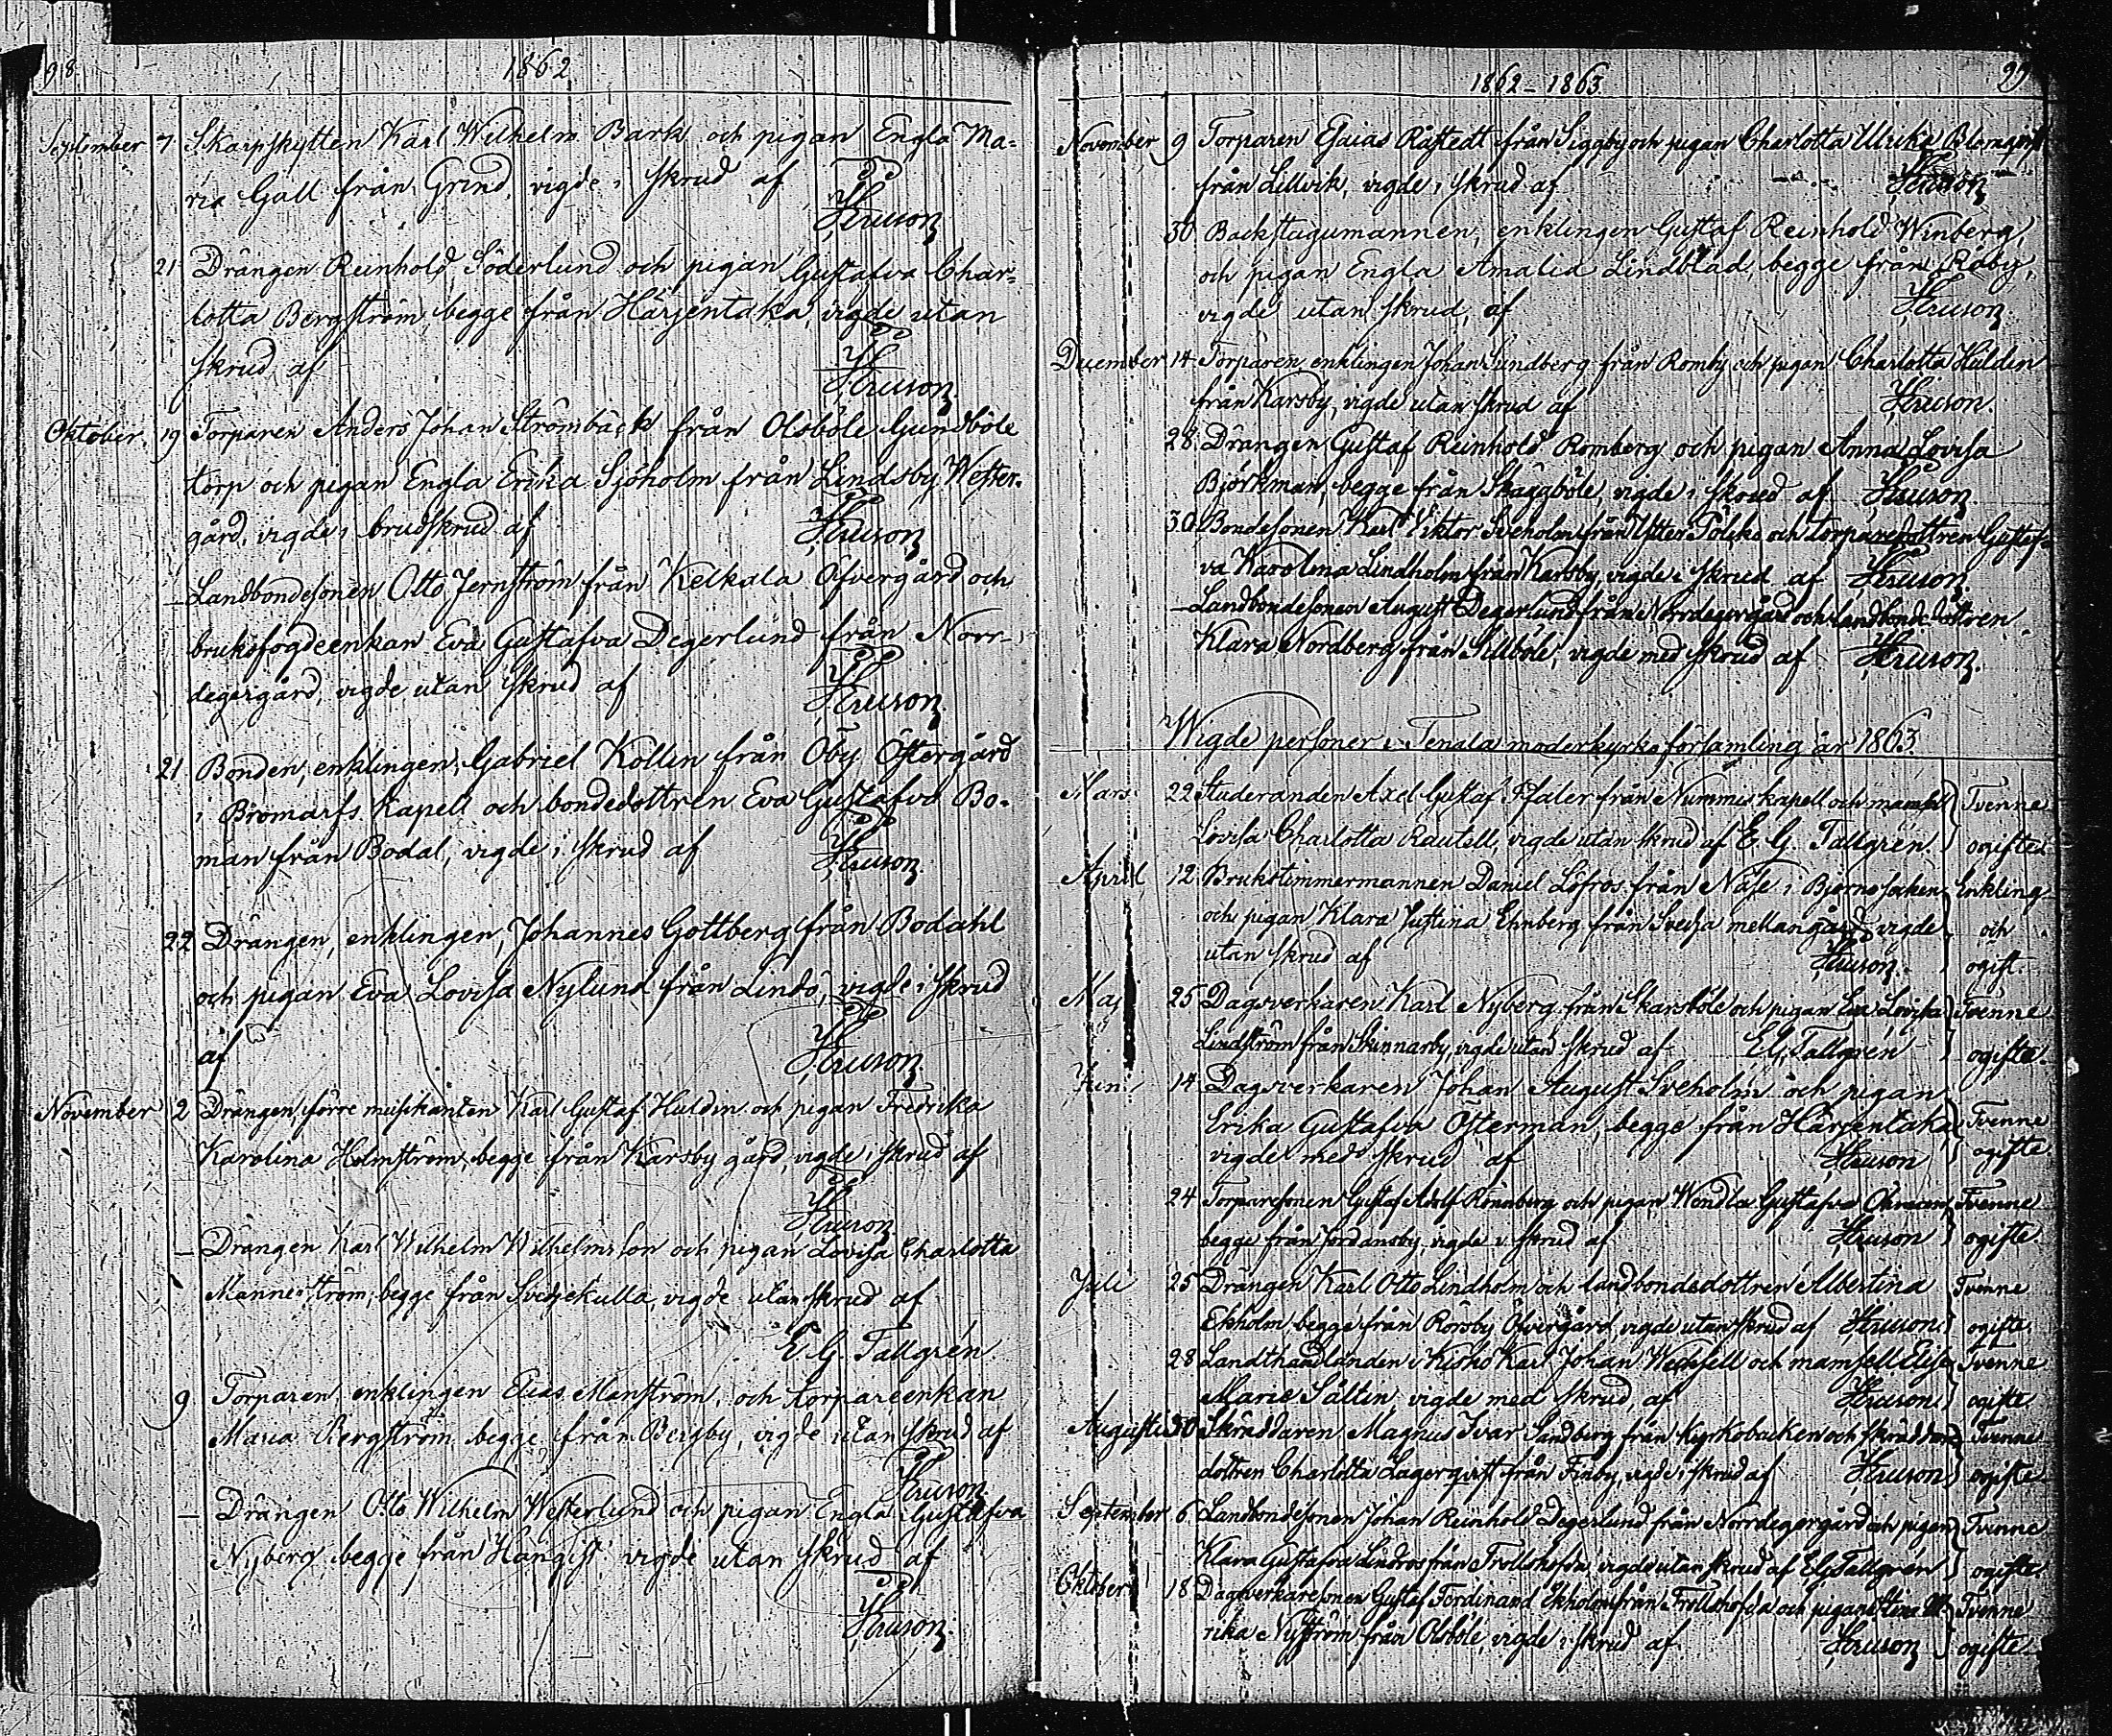 98.
1862
September 7 Skarpskytten Karl Wilhelm Bark och pigan Engla Ma=
ria Gall från Grind, vigde i skrud af
21 Drängen Reinhold Söderlund och pigan Gustafva Char=
lotta Bergström, begge från Härjentaka, vigde utan
skrud af
Oktober. 19 Torparen Anders Johan Strömbäck från Olsböle Gundböle
torp och pigan Engla Erika Sjöholm från Lindsby Wester=
gård, vigde i brudskrud af
— Landbondesonen Otto Jernström från Kelkala Öfvergård och
bruksfogdeenkan Eva Gustafva Degerlund från Norr-
degergård, vigde utan skrud af
21 Bonden, enklingen, Gabriel Kollin från Öby Östergård
i Bromarfs Kapell och bondedottren Eva Gustafva Bo=
man från Bodal, vigde i skrud af
22 Drängen, enklingen, Johannes Gottberg från Bodahl
och pigan Eva Lovisa Nylund från Lindö, vigde i skrud
af
November 2 Drängen, förre musikanten Karl Gustaf Huldin och pigan Fredrika
Karolina Holmström, begge från Karsby gård, vigde i skrud af
— Drängen Karl Wilhelm Wilhelmsson och pigan Lovisa Charlotta
Mannerström, begge från Svedjekulla, vigde utan skrud af
E. G. Tallgrén
9 Torparen, enklingen Elias Manström, och torpareenkan
Maria Bergström begge från Bergby, vigde utan skrud af
— Drängen Otto Wilhelm Westerlund och pigan Engla Gustafva
Nyberg begge från Hangist vigde utan skrud af
1862–1863.
99
November 9 Torparen Esaias Råstedt från Siggby och pigan Charlotta Ulrika Blomqvist
från Lillvik, vigde i skrud af
30 Backstugumannen, enklingen Gustaf Reinhold Winberg,
och pigan Engla Amalia Lindblad, begge från Råby,
vigde utan skrud, af
December 14 Torparen, enklingen Johan Sundberg från Romby och pigan Charlotta Huldin
från Karsby, vigde utan skrud af
28. Drängen Gustaf Reinhold Romberg och pigan Anna Lovisa
Björkman, begge från Skäggböle, vigde i skrud af
30. Bondesonen Karl Viktor Sveholm från Ytter Pölsko och torparedottren Gustaf=
va Karolina Lindholm från Karsby, vigde i skrud af
— Landbondesonen August Degerlund från Norrdegergård och landbondedottren
Klara Nordberg från Sillböle, vigde med skrud af
Wigde personer i Tenala moderkyrkoförsamling år 1863.
Mars 22 Studeranden Axel Gustaf Pfaler från Nummis kapell och mamsell Tvenne
Lovisa Charlotta Rautell, vigde utan skrud af E. G. Tallgrén. ogifte.
April 12. Brukstimmermannen Daniel Löfros från Näse i Bjerno socken Enkling
och pigan Klara Justina Ehnberg från Svedja mellangård, vigde och
utan skrud af ogift.
Maj 25 Dagsverkaren Karl Nyberg från Skarsböle och pigan Eva Lovisa Tvenne
Lindström från Skinnarby, vigde utan skrud af E. G. Tallgrén ogifte.
Juni 14 Dagsverkaren Johan August Sveholm och pigan
Erika Gustafva Österman, begge från Härjentaka Tvenne
vigde med skrud af ogifte
24 Torparesonen Gustaf Adolf Rönnberg och pigan Wendla Gustafva Tvenne
begge från Jordansby, vigde i skrud af ogifte
Juli 25 Drängen Karl Otto Lindholm och landbondedottren Albertina Tvenne
Ekholm, begge från Rörsby Öfvergård, vigde utan skrud af ogifte.
28 Landthandlanden i Kisko Karl Johan Wechsell och mamsell Elise Tvenne
Marie Sältin, vigde med skrud, af ogifte
Augusti 30 Skräddaren Magnus Ivar Sandberg från Kyrkobacken och skräddare Tvenne
dottren Charlotta Lagerqvist från Finby, vigde i skrud af ogifte.
September 6 Landbondesonen Johan Reinhold Degerlund från Norrdegergård och pigan Tvenne
Klara Gustafva Lindros från Trollshofda, vigde utan skrud af E. G. Tallgrén ogifte.
Oktober 18 Dagsverkaresonen Gustaf Ferdinand Ekholm från Trollshofda och pigan Stina Ul= Tvenne
rika Nyström från Olsböle, vigde i skrud af ogifte.